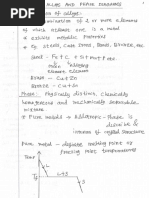 ALLOYS AND PHASE DIAGRAMS
of alloys:-
combination of 2 or more elements
of which atleast one is a metal
exhibits metallic properties
Eg Steel, Cast Iron, Brass, Bronze, etc.
Steel - Fe + C + Si + Mn + Cr
main alloying
element elements
Brass - Cu + Zn
Bronze - Cu + Sn
Phase: Physically distinct, chemically
homogeneous and mechanically separable
mixture
* Pure metal → Allotropic - phase is
distinct in
of crystal structure
Pure metal → definite melting point or
freezing point temperature
L
L+S
S